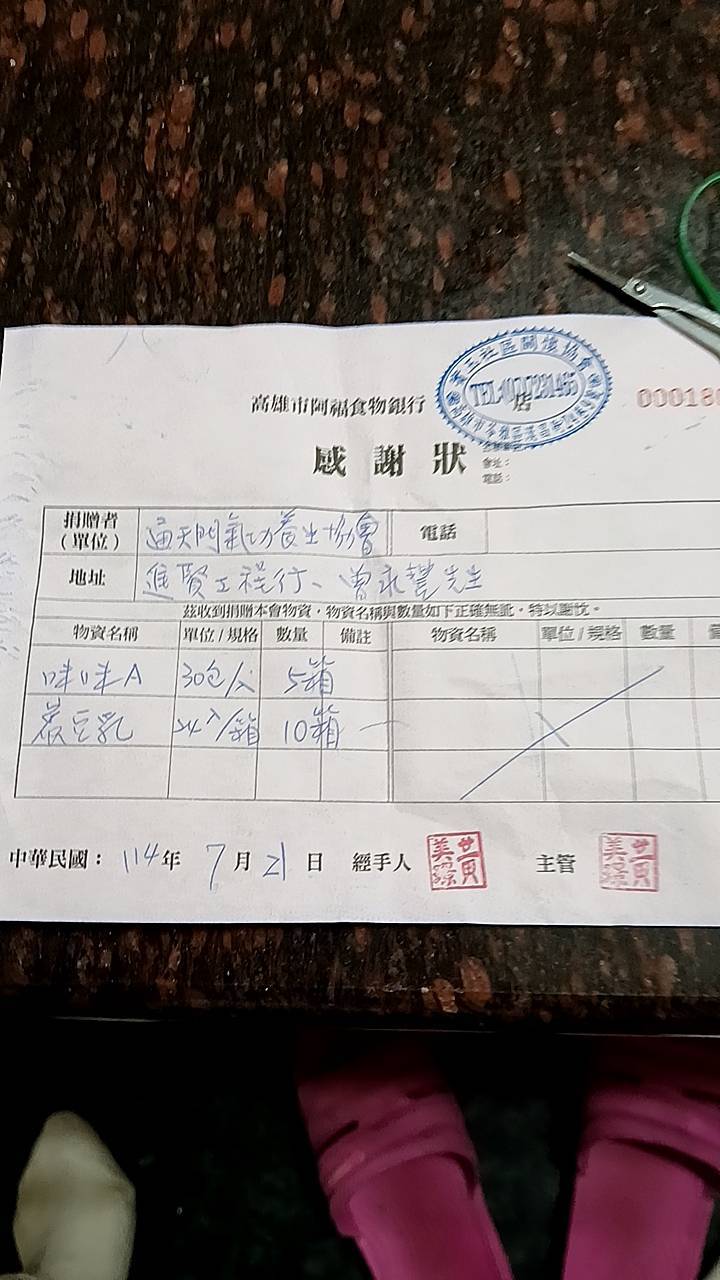 高雄市阿福食物銀行 店
TEL:(07)7231465
000180
感謝狀
會址：
電話：
捐贈者（單位） 通天門氣功養生協會 電話
地址 進賢工程行、曾永豐先生
茲收到捐贈本會物資，物資名稱與數量如下正確無訛，特以謝忱。
物資名稱 單位/規格 數量 備註 物資名稱 單位/規格 數量
味味A 30包/入 5箱
蔗豆乳 24入/箱 10箱
中華民國：114年 7月21日 經手人 主管